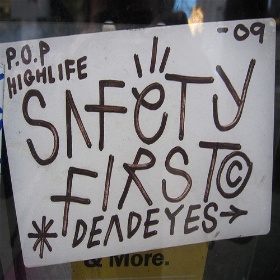 P.O.P -09
HIGHLIFE
SAFETY
FIRST©
* DEADEYES→
& More.